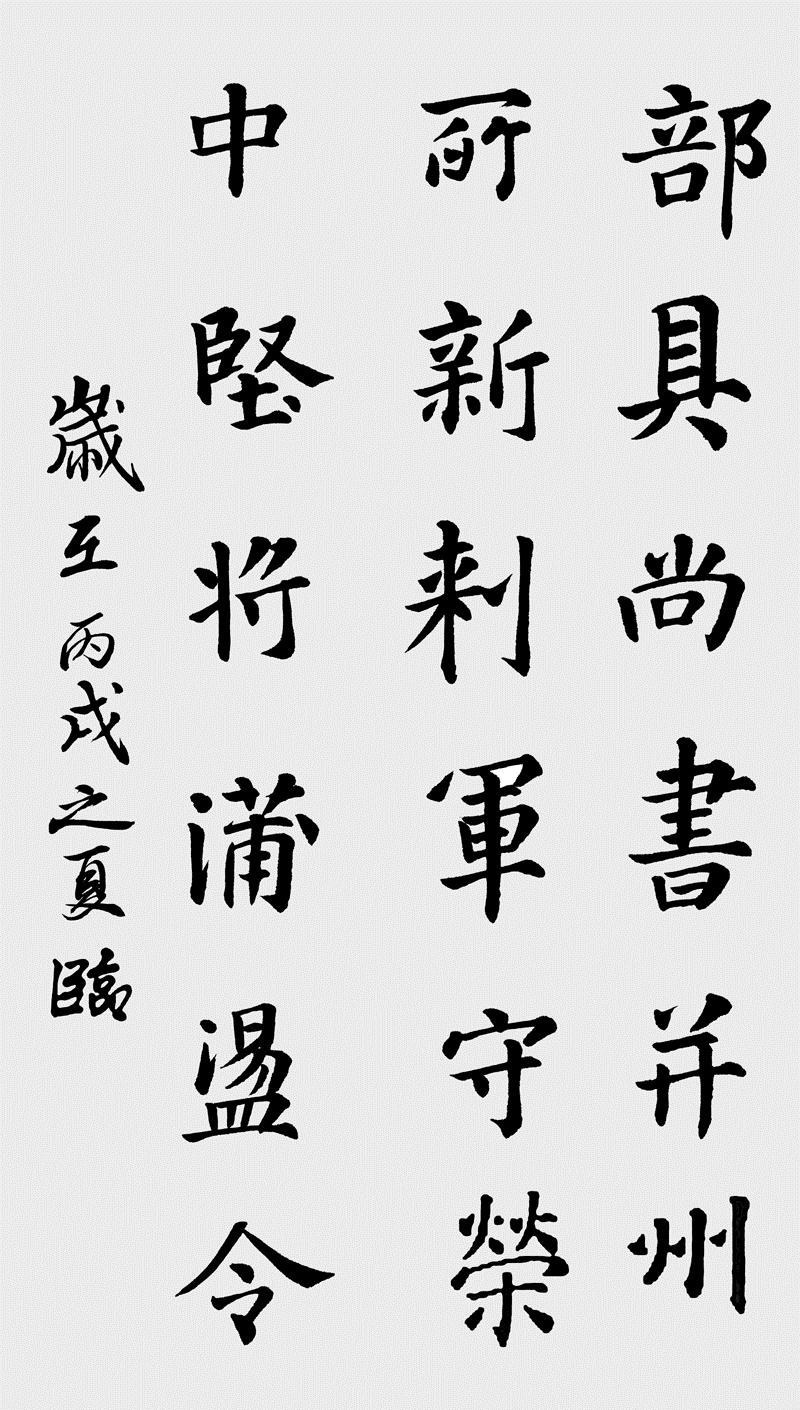 部具尚書并州
所新刺軍守榮
中堅将蒲盪令
歲在丙戌之夏臨